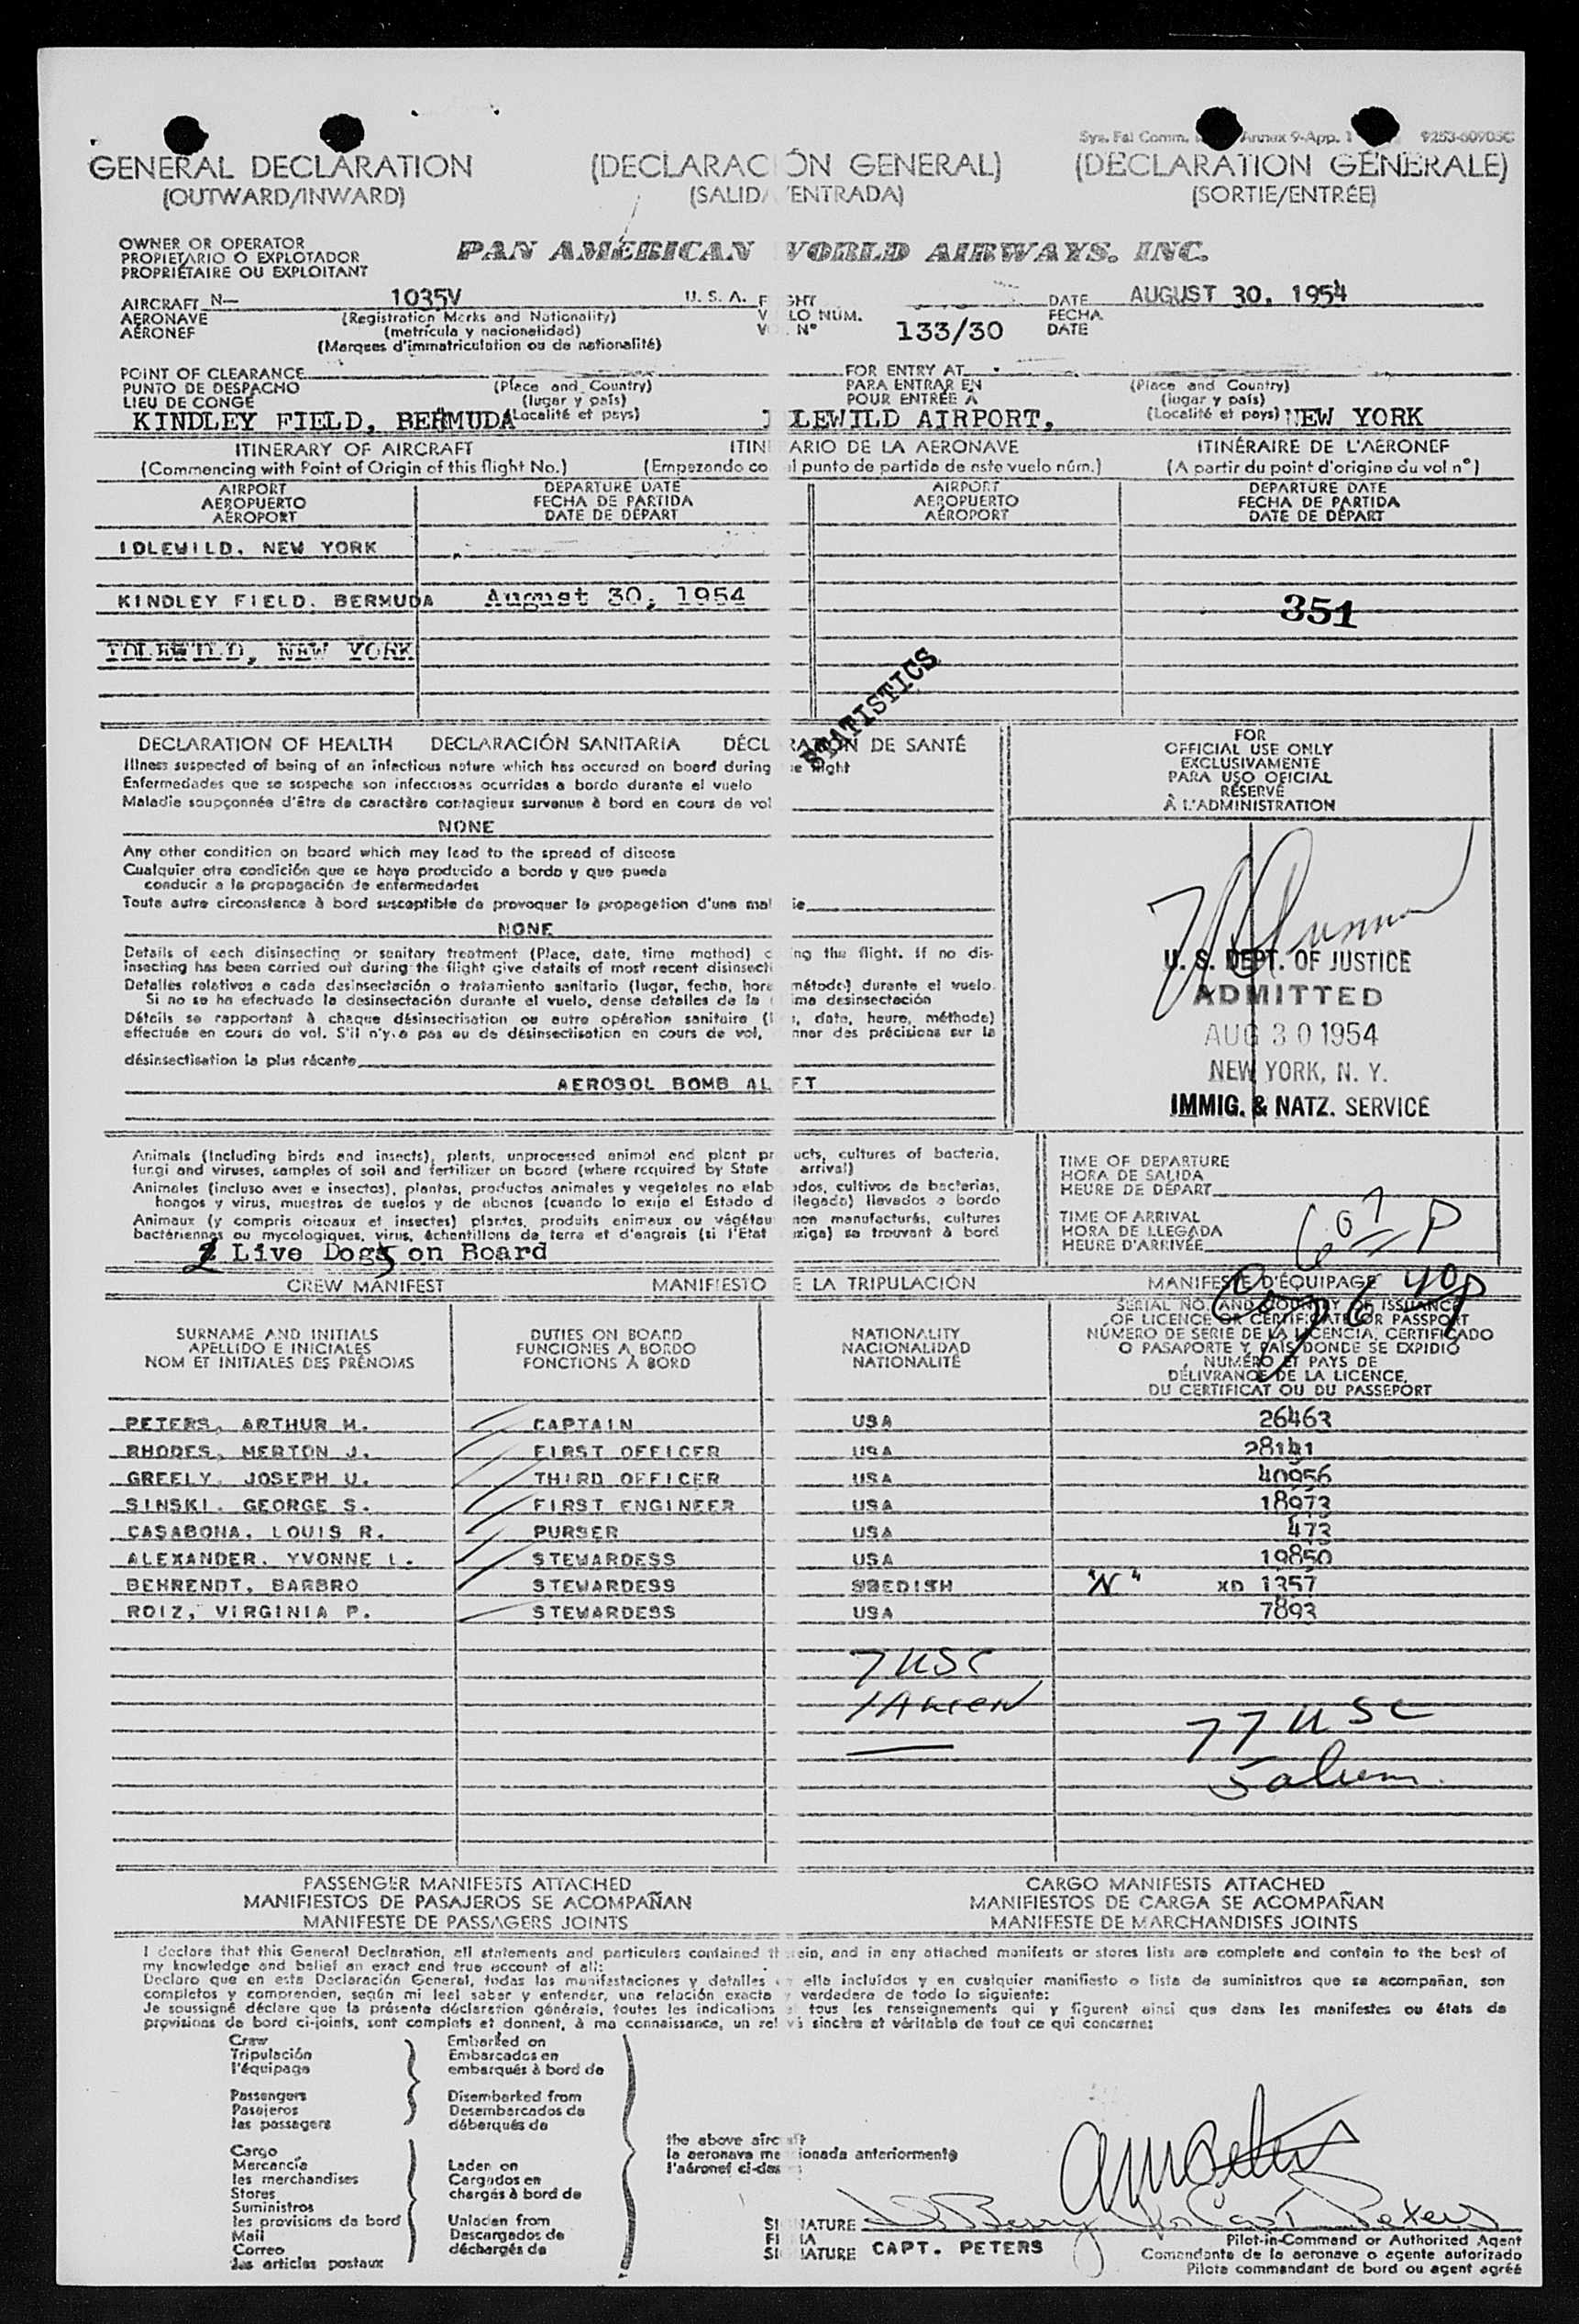 Sys. Fal Comm. Annex 9-App. 1 9253-60905C
GENERAL DECLARATION (DECLARAC ÓN GENERAL) (DECLARATION GÉNÉRALE)
(OUTWARD/INWARD) (SALIDA/ENTRADA) (SORTIE/ENTRÉE)
OWNER OR OPERATOR
PROPIETARIO O EXPLOTADOR
PROPRIÉTAIRE OU EXPLOITANT
PAN AMERICAN WORLD AIRWAYS. INC.
AIRCRAFT N— 1035V U. S. A. F GHT DATE AUGUST 30, 1954
AERONAVE (Registration Marks and Nationality) V LO NÚM. 133/30 FECHA
AÉRONEF (matrícula y nacionalidad) V N° DATE
(Marques d'immatriculation ou de nationalité)
POINT OF CLEARANCE FOR ENTRY AT
PUNTO DE DESPACHO (Place and Country) PARA ENTRAR EN (Place and Country)
LIEU DE CONGÉ (lugar y país) POUR ENTRÉE À (lugar y país)
KINDLEY FIELD, BERMUDA (Localité et pays) I LEWILD AIRPORT, (Localité et pays) NEW YORK
ITINERARY OF AIRCRAFT ITIN ARIO DE LA AERONAVE ITINÉRAIRE DE L'AÉRONEF
(Commencing with Point of Origin of this flight No.) (Empezando co l punto de partida de este vuelo núm.) (A partir du point d'origine du vol n°)
AIRPORT DEPARTURE DATE AIRPORT DEPARTURE DATE
AEROPUERTO FECHA DE PARTIDA AEROPUERTO FECHA DE PARTIDA
AÉROPORT DATE DE DÉPART AÉROPORT DATE DE DÉPART
IDLEWILD, NEW YORK
KINDLEY FIELD. BERMUDA August 30, 1954 351
IDLEWILD, NEW YORK
STATISTICS
DECLARATION OF HEALTH DECLARACIÓN SANITARIA DÉCL RATION DE SANTÉ
Illness suspected of being of an infectious nature which has occured on board during he flight
Enfermedades que se sospecha son infecciosas ocurridas a bordo durante el vuelo
Maladie soupçonnée d'être de caractère contagieux survenue à bord en cours de vol
NONE
Any other condition on board which may lead to the spread of disease
Cualquier otra condición que se haya producido a bordo y que pueda
conducir a la propagación de enfermedades
Toute autre circonstance à bord susceptible de provoquer la propagation d'une mal ie
NONE
Details of each disinsecting or sanitary treatment (Place, date, time method) d ing the flight. If no dis-
insecting has been carried out during the flight give details of most recent disinsecti
Detalles relativos a cada desinsectación o tratamiento sanitario (lugar, fecha, hora método) durante el vuelo.
Si no se ha efectuado la desinsectación durante el vuelo, dense detalles de la ima desinsectación
Détails se rapportant à chaque désinsectisation ou autre opération sanitaire (l , date, heure, méthode)
effectuée en cours de vol. S'il n'y a pas eu de désinsectisation en cours de vol, nner des précisions sur la
désinsectisation la plus récente
AEROSOL BOMB AL FT
FOR
OFFICIAL USE ONLY
EXCLUSIVAMENTE
PARA USO OFICIAL
RÉSERVÉ
À L'ADMINISTRATION
U. S. DEPT. OF JUSTICE
ADMITTED
AUG 30 1954
NEW YORK, N. Y.
IMMIG. & NATZ. SERVICE
Animals (Including birds and insects), plants, unprocessed animal and plant pr ucts, cultures of bacteria,
fungi and viruses, samples of soil and fertilizer on board (where required by State arrival)
Animales (incluso aves e insectos), plantas, productos animales y vegetales no elab ados, cultivos de bacterias,
hongos y virus, muestras de suelos y de abonos (cuando lo exija el Estado d llegada) llevados a bordo
Animaux (y compris oiseaux et insectes) plantes, produits animaux ou végétau non manufacturés, cultures
bactériennes ou mycologiques, virus, échantillons de terre et d'engrais (si l'État exige) se trouvant à bord
2 Live Dogs on Board
TIME OF DEPARTURE
HORA DE SALIDA
HEURE DE DÉPART
TIME OF ARRIVAL
HORA DE LLEGADA
HEURE D'ARRIVÉE 607 P
CREW MANIFEST MANIFIESTO E LA TRIPULACIÓN MANIFESTE D'ÉQUIPAGE 640P
SURNAME AND INITIALS DUTIES ON BOARD NATIONALITY SERIAL NO. AND COUNTRY OF ISSUANCE
APELLIDO E INICIALES FUNCIONES A BORDO NACIONALIDAD OF LICENCE OR CERTIFICATE OR PASSPORT
NOM ET INITIALES DES PRÉNOMS FONCTIONS À BORD NATIONALITÉ NÚMERO DE SERIE DE LA LICENCIA, CERTIFICADO
O PASAPORTE Y PAÍS DONDE SE EXPIDIÓ
NUMÉRO ET PAYS DE
DÉLIVRANCE DE LA LICENCE,
DU CERTIFICAT OU DU PASSEPORT
PETERS, ARTHUR M. CAPTAIN USA 26463
RHODES, MERTON J. FIRST OFFICER USA 28141
GREELY, JOSEPH U. THIRD OFFICER USA 40956
SINSKI. GEORGE S. FIRST ENGINEER USA 18973
CASABONA, LOUIS R. PURSER USA 473
ALEXANDER. YVONNE L. STEWARDESS USA 19850
BEHRENDT, BARBRO STEWARDESS SWEDISH "N" XD 1357
ROIZ, VIRGINIA P. STEWARDESS USA 7893
7 USC
1 ALIEN
77 USC
5 alien
PASSENGER MANIFESTS ATTACHED CARGO MANIFESTS ATTACHED
MANIFIESTOS DE PASAJEROS SE ACOMPAÑAN MANIFIESTOS DE CARGA SE ACOMPAÑAN
MANIFESTE DE PASSAGERS JOINTS MANIFESTE DE MARCHANDISES JOINTS
I declare that this General Declaration, all statements and particulars contained th rein, and in any attached manifests or stores lists are complete and contain to the best of
my knowledge and belief an exact and true account of all:
Declaro que en esta Declaración General, todas las manifestaciones y detalles en ella incluídos y en cualquier manifiesto o lista de suministros que se acompañan, son
completos y comprenden, según mi leal saber y entender, una relación exacta y verdadera de todo lo siguiente:
Je soussigné déclare que la présente déclaration générale, toutes les indications et tous les renseignements qui y figurent ainsi que dans les manifestes ou états de
provisions de bord ci-joints, sont complets et donnent, à ma connaissance, un rel vé sincère et véritable de tout ce qui concerne:
Crew Embarked on
Tripulación Embarcados en
l'équipage embarqués à bord de
Passengers Disembarked from
Pasajeros Desembarcados de
les passagers débarqués de
the above airc aft
la aeronave me cionada anteriormente
l'aéronef ci-des
Cargo
Mercancía Laden on
les merchandises Cargados en
Stores chargés à bord de
Suministros
les provisions de bord Unladen from
Mail Descargados de
Correo déchargés de
les articles postaux
AM Peters
SI NATURE Berry for Capt Peters
FI MA Pilot-in-Command or Authorized Agent
SI NATURE CAPT. PETERS Comandante de la aeronave o agente autorizado
Pilote commandant de bord ou agent agréé